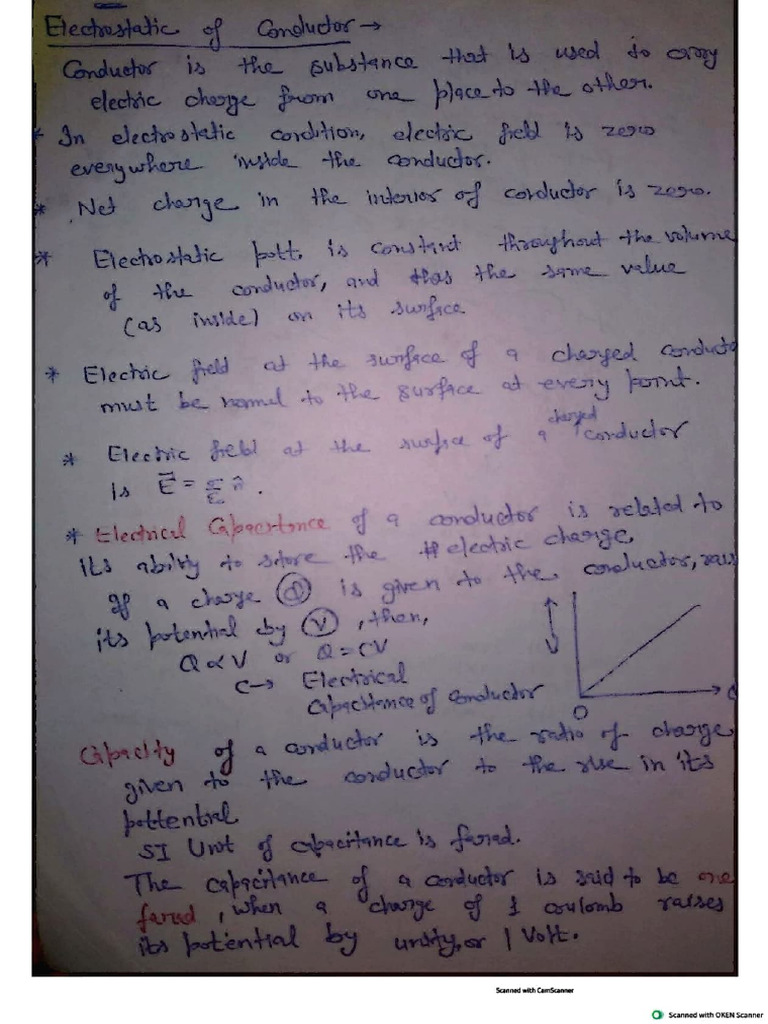 Electrostatic of Conductor →
Conductor is the substance that is used to carry
electric charge from one place to the other.
* In electrostatic condition, electric field is zero
everywhere inside the conductor.
* Net charge in the interior of conductor is zero.
* Electrostatic pott. is constant throughout the volume
of the conductor, and has the same value
(as inside) on its surface
* Electric field at the surface of a charged conducto
must be normal to the surface at every point.
* Electric field at the surface of a charged conductor
is E⃗ = σ/ε n̂ .
* Electrical Capacitance of a conductor is related to
its ability to store the electric charge,
If a charge Q is given to the conductor, rais
its potential by V , then,
Q ∝ V or Q = CV
C → Electrical
Capacitance of Conductor
V
O
Capacity of a conductor is the ratio of charge
given to the conductor to the rise in its
pottential
SI Unit of capacitance is farad.
The capacitance of a conductor is said to be one
farad , when a charge of 1 coulomb raises
its potential by unity, or 1 Volt.
Scanned with CamScanner
Scanned with OKEN Scanner